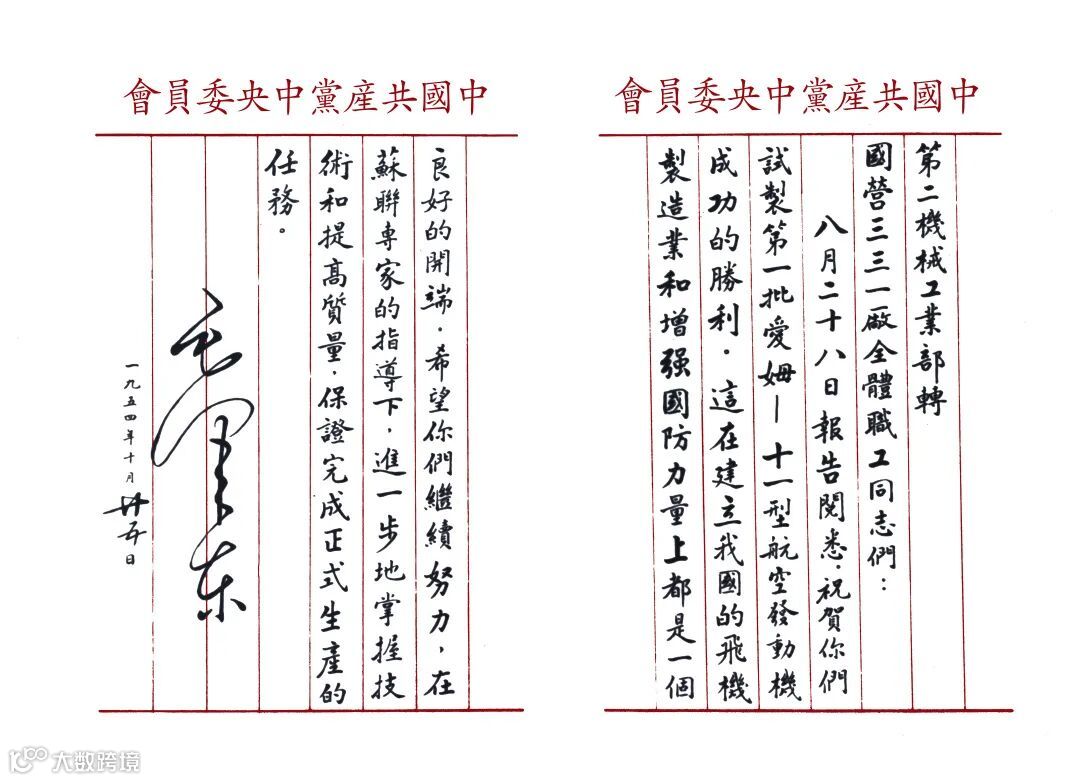 中國共産黨中央委員會
第二機械工業部轉
國營三三一廠全體職工同志們：
八月二十八日報告閱悉．祝賀你們
試製第一批愛姆—十一型航空發動機
成功的勝利．這在建立我國的飛機
製造業和增强國防力量上都是一個
中國共産黨中央委員會
良好的開端．希望你們繼續努力，在
蘇聯專家的指導下，進一步地掌握技
術和提高質量，保證完成正式生產的
任務。
毛澤東
一九五四年十月廿五日
大数跨境